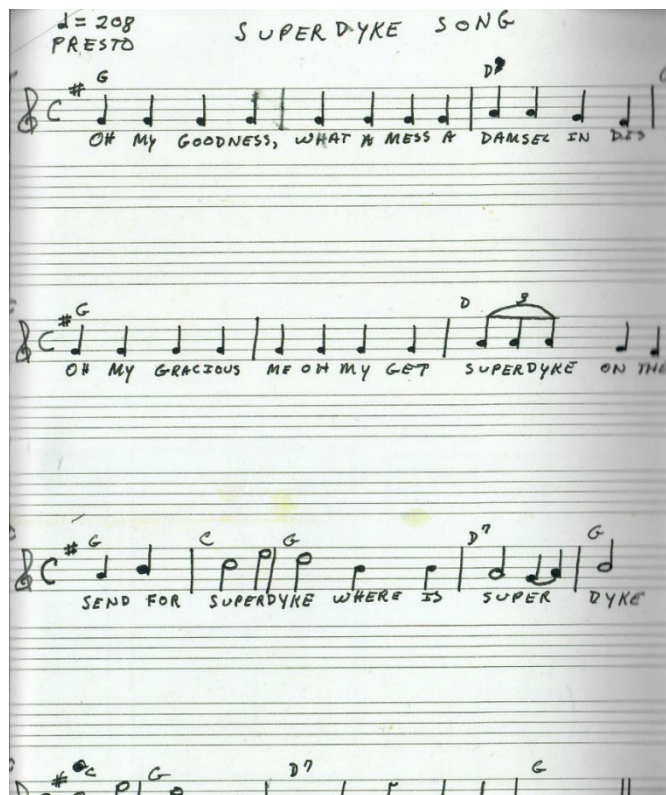 ♩= 208 SUPERDYKE SONG
PRESTO
G D7
OH MY GOODNESS, WHAT A MESS A DAMSEL IN DIS
G D 3
OH MY GRACIOUS ME OH MY GET SUPERDYKE ON THE
G C G D7 G
SEND FOR SUPERDYKE WHERE IS SUPER DYKE
C G D7 G